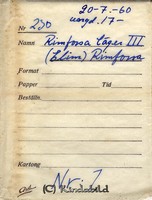 20-7-60
ungd. 17-
Nr 230
Namn Rimforsa Läger III
(Elim) Rimforsa
Format
Papper Tid
Beställn.
Kartong
Nr: 7
(C) Kindabild